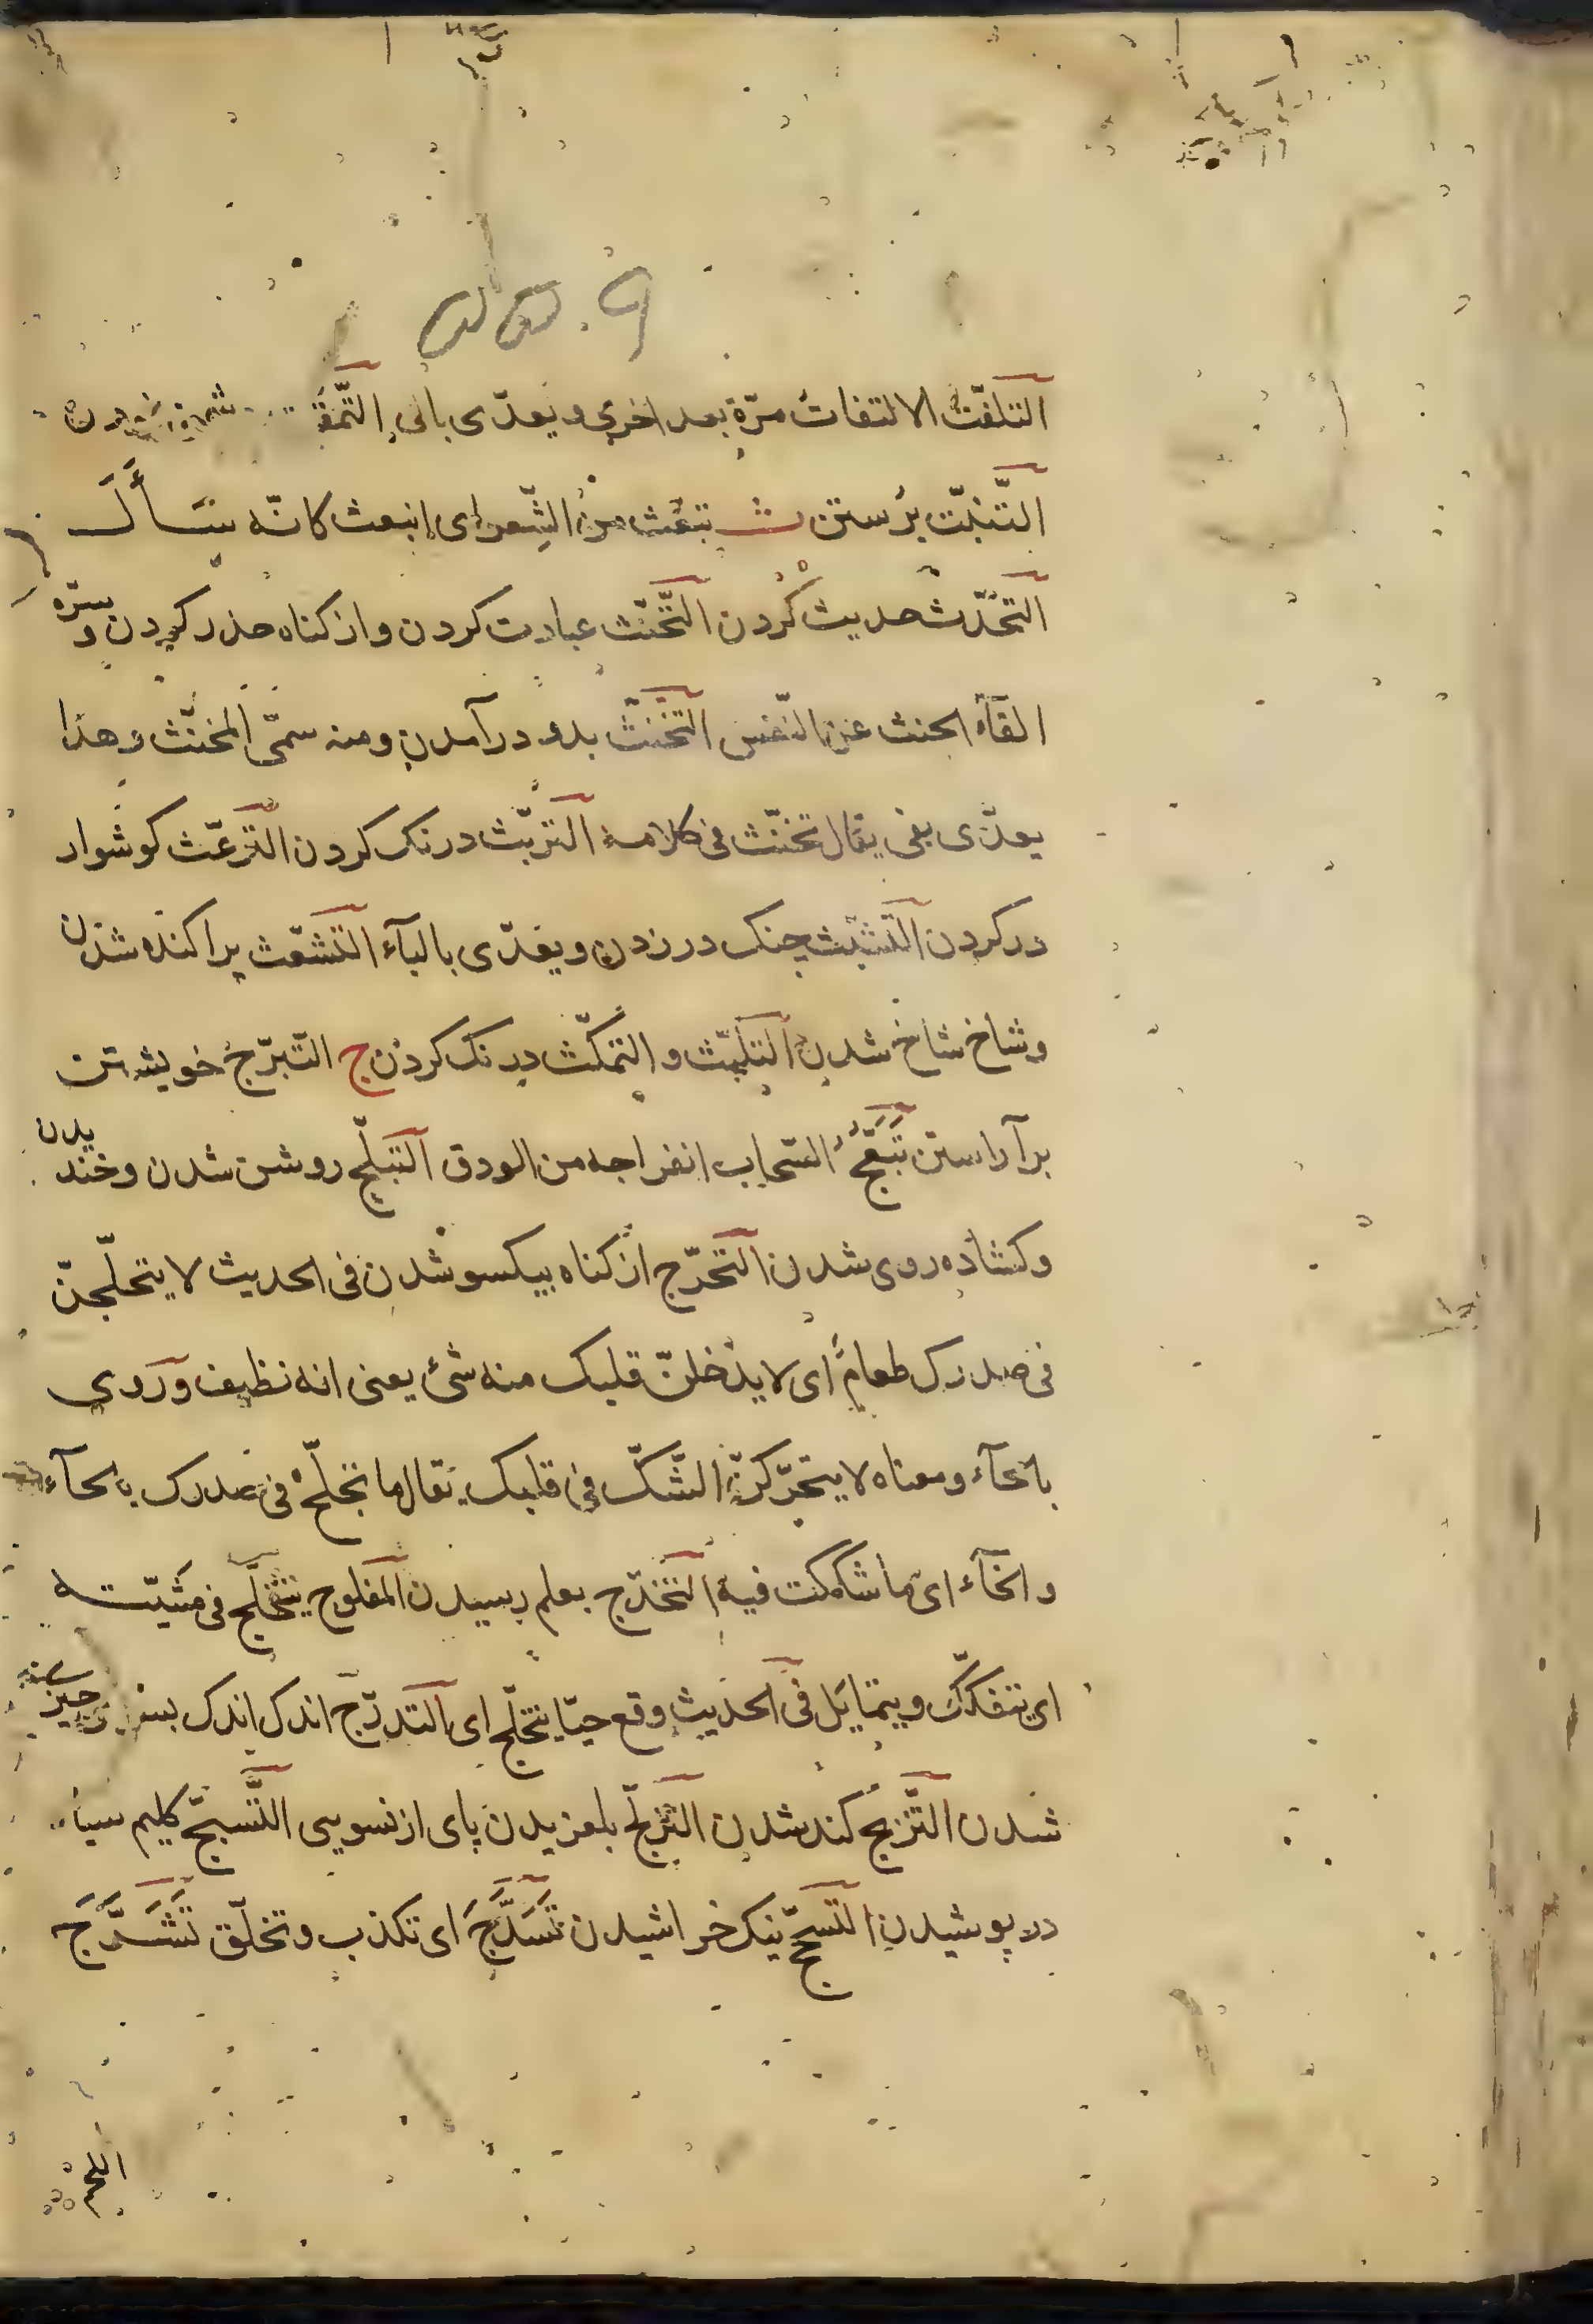 التلفّت الالتفات مرّة بعد اخری و یعدّی بالی التّمقّت
التّنبّت برستن ث تبعّث من الشّعر ای انبعث کانّه سَأَلَ
التّحدّث حدیث کردن التّحنّث عبادت کردن و از کناه حذر کردن و سترّه
القآء الحنث عن النّفس التّخنّث بدو در آمدن و منه سمّی المخنّث و هذا
یعدّی بفی یقال تخنّث فی کلامه التّربّث درنک کردن التّرعّث کوشوار
در کردن التّشبّث چنک در زدن و یعدّی بالبآء التّشعّث پراکنده شدن
و شاخ شاخ شدن التّلبّث و التّمکّث درنک کردن ج التّبرّج خویشتن
برآراستن تَبَعَّجُ السّحاب انفراجه من الودق التّبلّج روشن شدن و خندیدن
و کشاده روی شدن التّحرّج از کناه بیکسو شدن فی الحدیث لا یتخلّجنّ
فی صدرک طعامٌ ای لا یدخلنّ قلبک منه شئ یعنی انه نظیف و روی
بالحآء و معناه لا یتحرّکنّ الشّکّ فی قلبک یقال ما تخلّج فی صدرک بالحآء
و الخآء ای ما شککت فیه التّخرّج بعلم رسیدن المفلوج یتخلّج فی مشیته
ای یتفکّک و یتمایل فی الحدیث وقع حیّا یتخلّج ای التّدرّج اندک اندک چیز
شدن التّزبّج کند شدن التّزلّج بلغزیدن پای از نسویی التّسبّج کلیم سیاه
در پوشیدن التّسحّج نیک خراشیدن تَسَدَّجَ ای تکذب و تخلّق تَشَدَّجَ